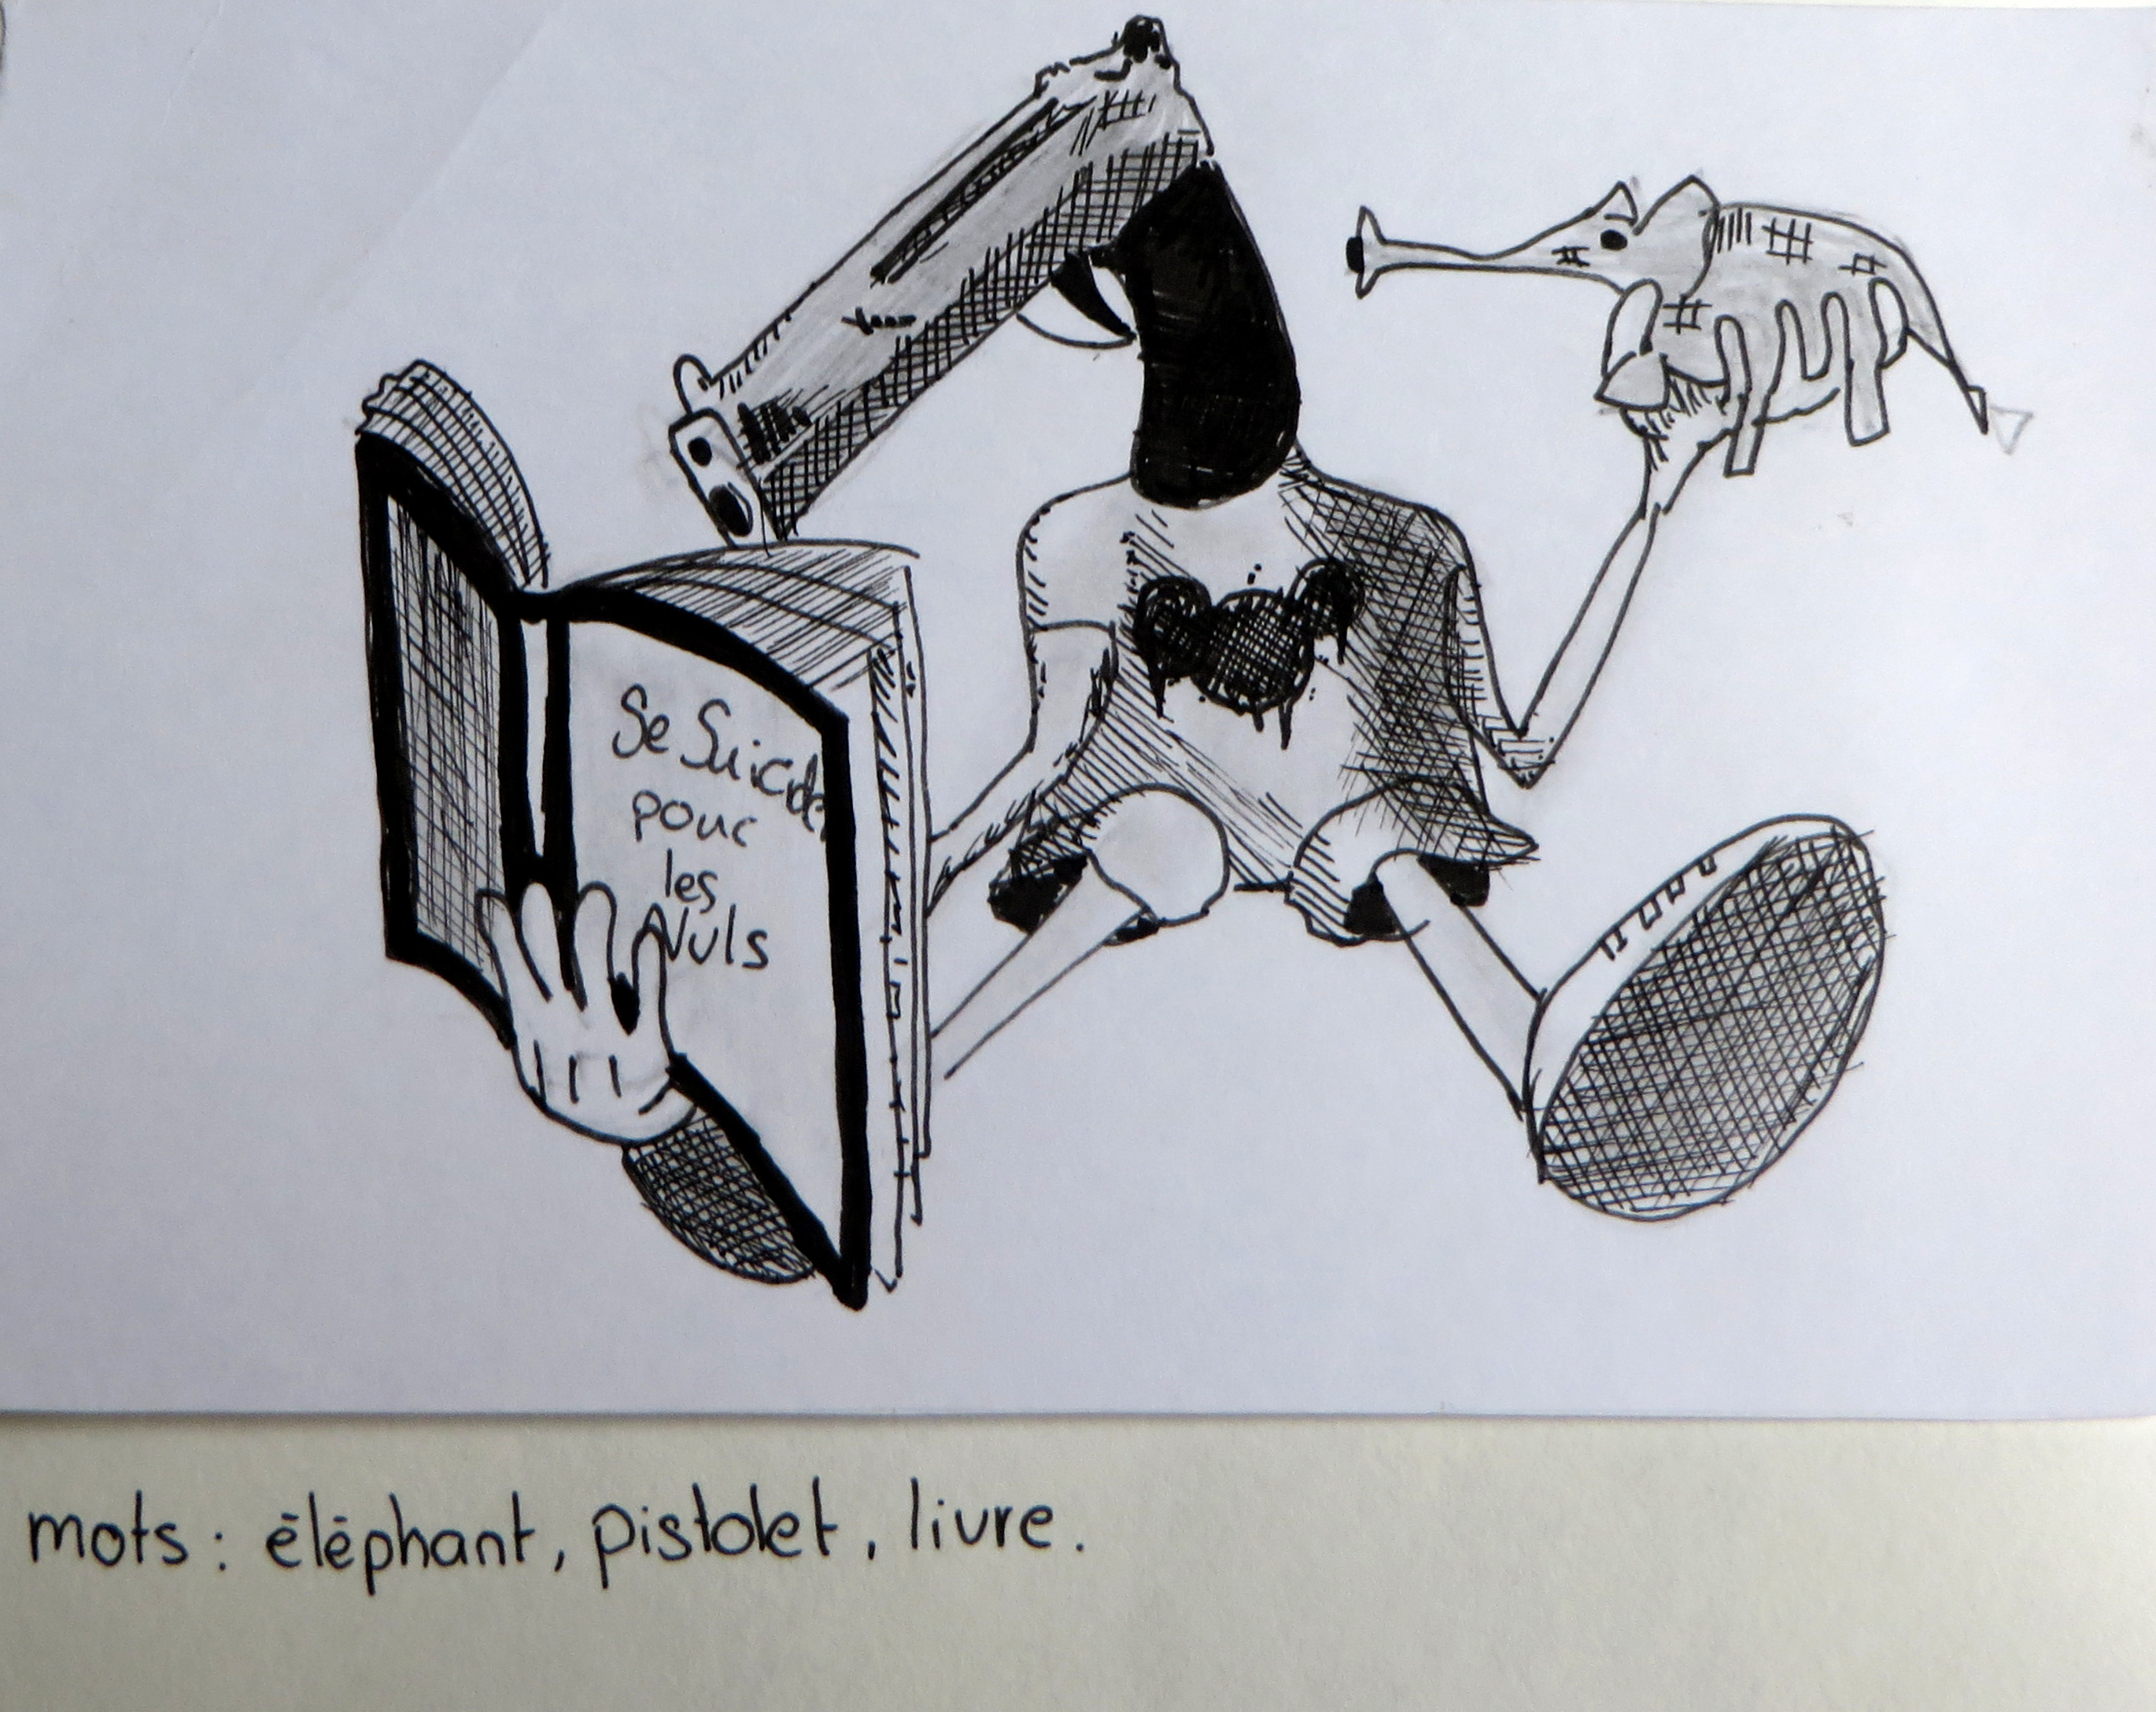 Se Suicider
pour
les
Nuls
mots : éléphant, pistolet, livre.